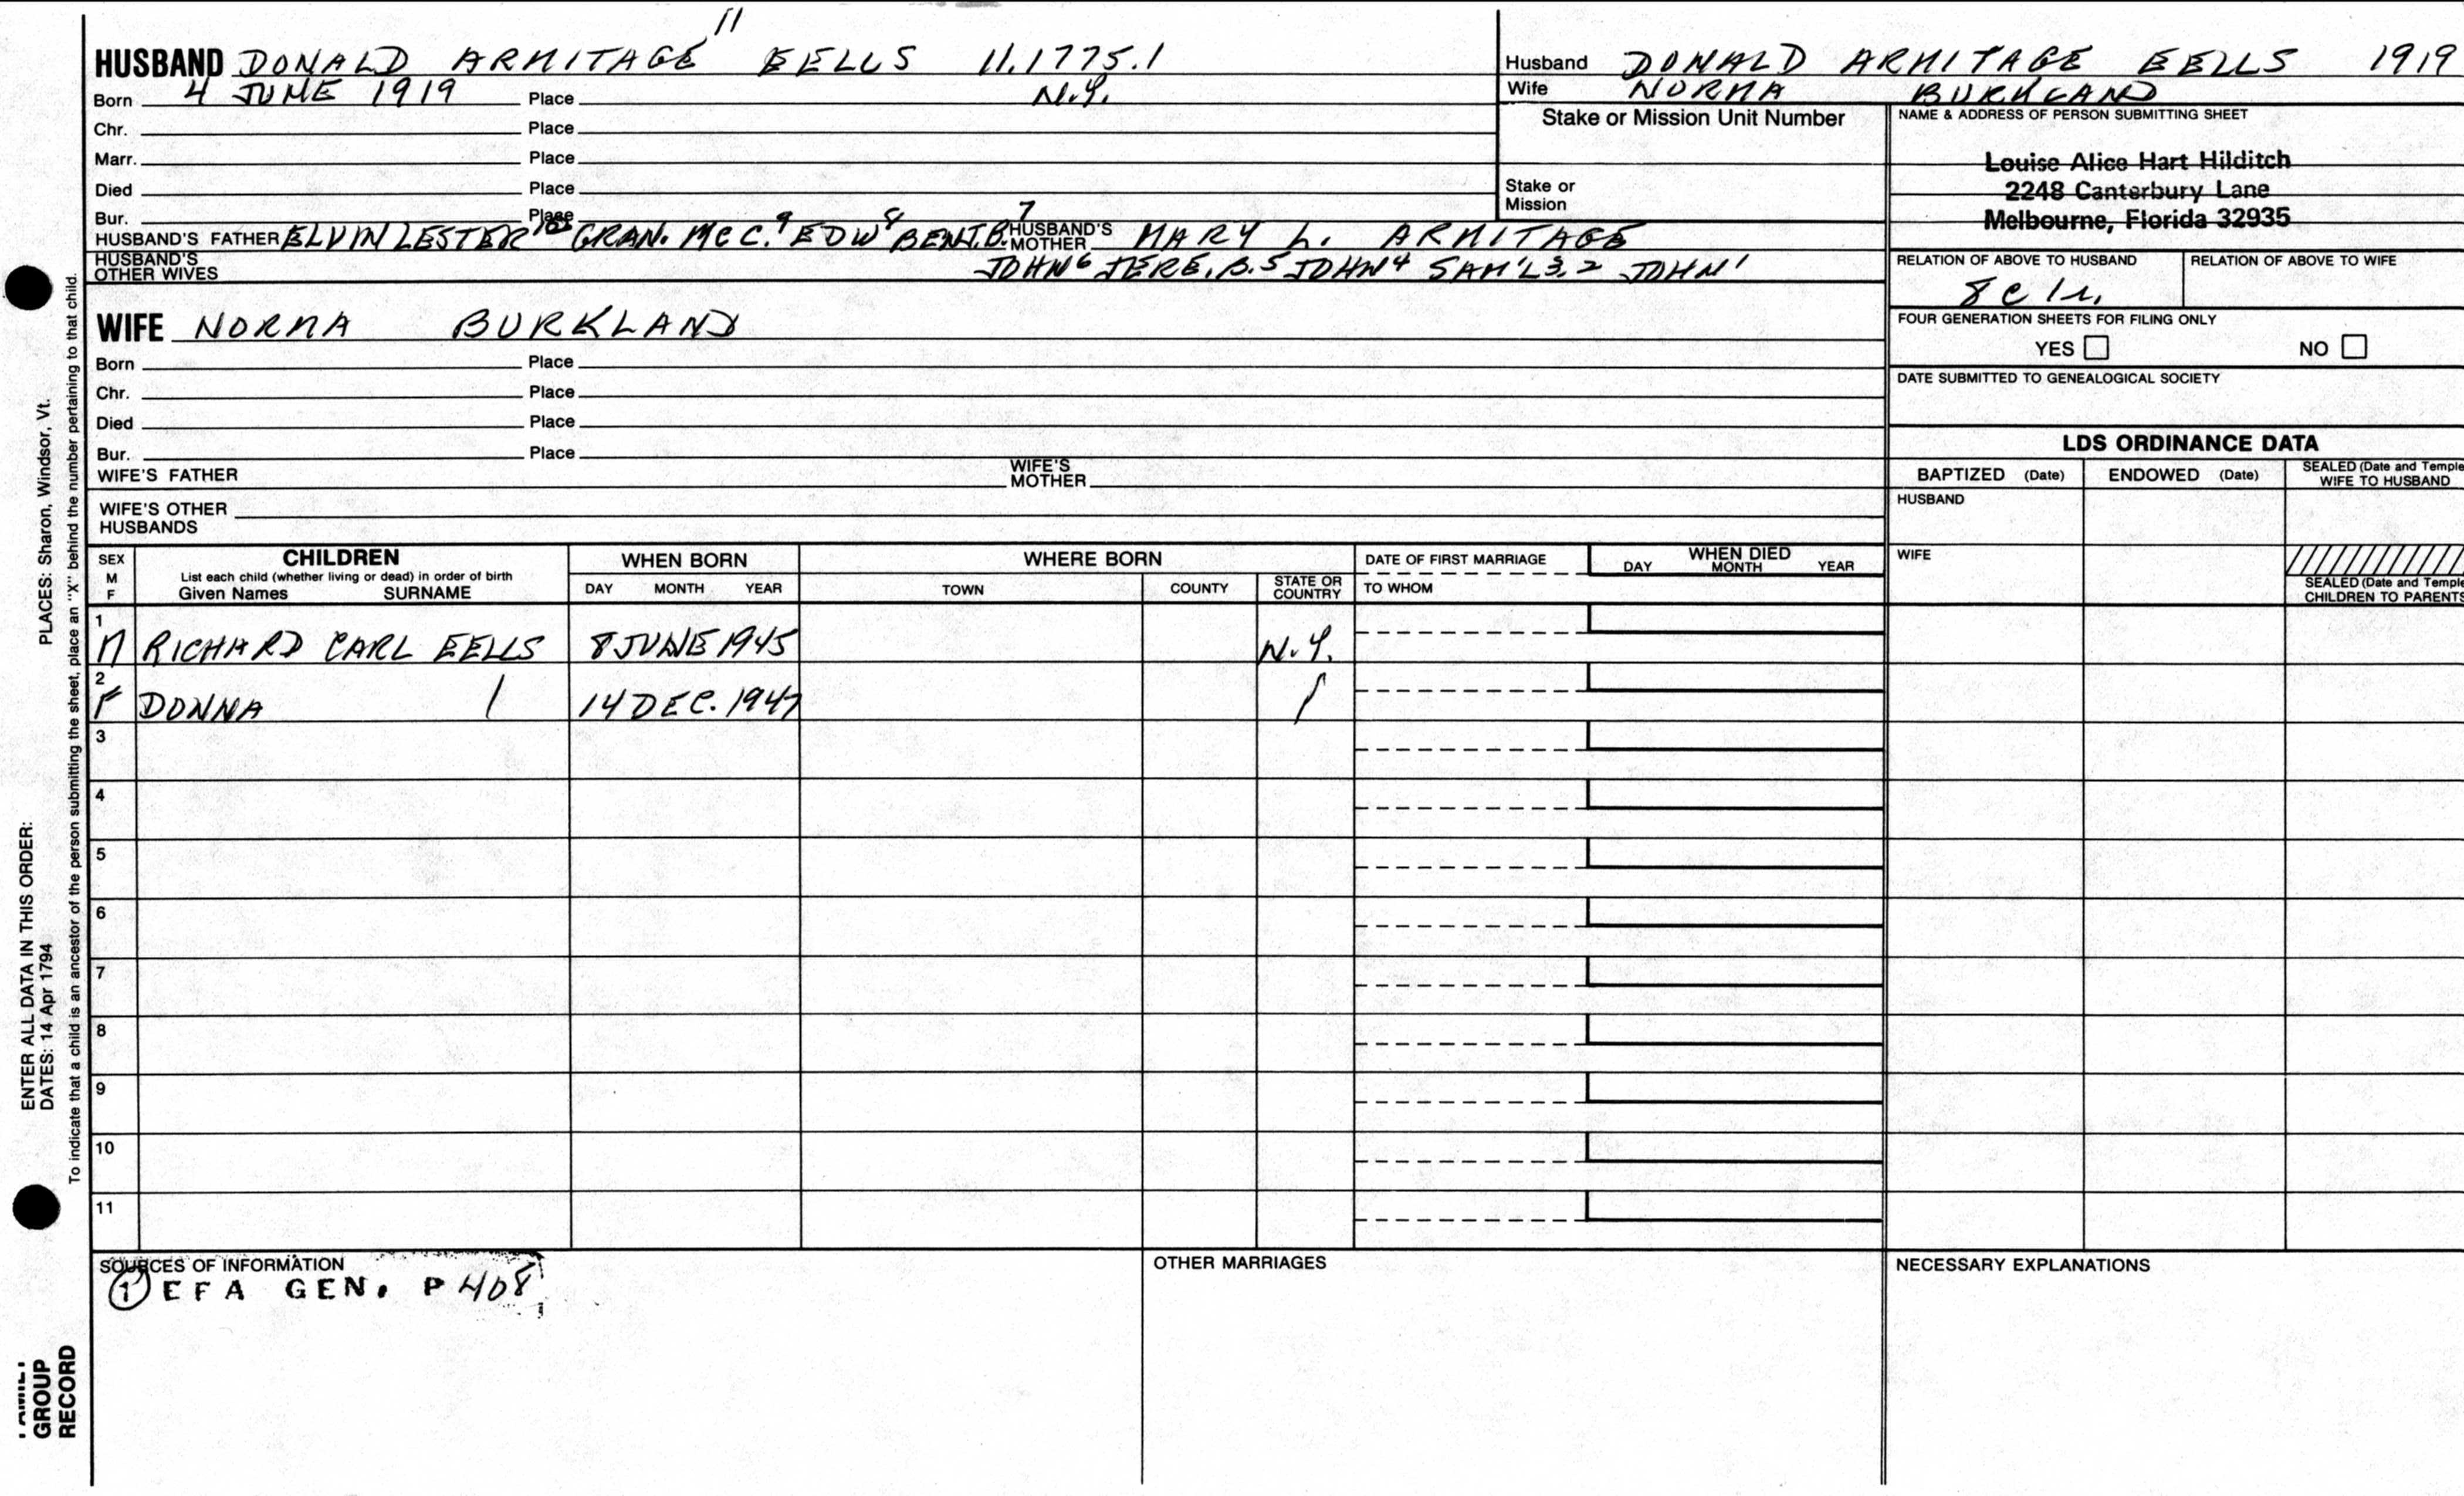 HUSBAND DONALD ARMITAGE 11 EELLS 11.1775.1
Born 4 JUNE 1919 Place N.Y.
Chr. Place
Marr. Place
Died Place
Bur. Place
HUSBAND'S FATHER ELVIN LESTER 10 GRAN. McC. 9 EDW 8 BENJ. B. 7 HUSBAND'S MOTHER MARY L. ARMITAGE
HUSBAND'S OTHER WIVES JOHN 6 JERE. B. 5 JOHN 4 SAM'L 3, 2 JOHN 1
WIFE NORMA BURKLAND
Born Place
Chr. Place
Died Place
Bur. Place
WIFE'S FATHER WIFE'S MOTHER
WIFE'S OTHER HUSBANDS
Husband DONALD ARMITAGE EELLS 1919
Wife NORMA BURKLAND
Stake or Mission Unit Number
Stake or
Mission
NAME & ADDRESS OF PERSON SUBMITTING SHEET
Louise Alice Hart Hilditch
2248 Canterbury Lane
Melbourne, Florida 32935
RELATION OF ABOVE TO HUSBAND RELATION OF ABOVE TO WIFE
8 c 1 r.
FOUR GENERATION SHEETS FOR FILING ONLY
YES NO
DATE SUBMITTED TO GENEALOGICAL SOCIETY
LDS ORDINANCE DATA
BAPTIZED (Date) ENDOWED (Date) SEALED (Date and Temple
WIFE TO HUSBAND
HUSBAND
WIFE
SEALED (Date and Temple
CHILDREN TO PARENTS
SEX M F CHILDREN WHEN BORN WHERE BORN DATE OF FIRST MARRIAGE WHEN DIED
List each child (whether living or dead) in order of birth
Given Names SURNAME DAY MONTH YEAR TOWN COUNTY STATE OR COUNTRY TO WHOM DAY MONTH YEAR
1
M RICHARD CARL EELLS 8 JUNE 1945 N.Y.
2
F DONNA 14 DEC. 1947
3
4
5
6
7
8
9
10
11
SOURCES OF INFORMATION
1 EFA GEN. P 408
OTHER MARRIAGES
NECESSARY EXPLANATIONS
ENTER ALL DATA IN THIS ORDER:
DATES: 14 Apr 1794 PLACES: Sharon, Windsor, Vt.
To indicate that a child is an ancestor of the person submitting the sheet, place an "X" behind the number pertaining to that child.
GROUP
RECORD